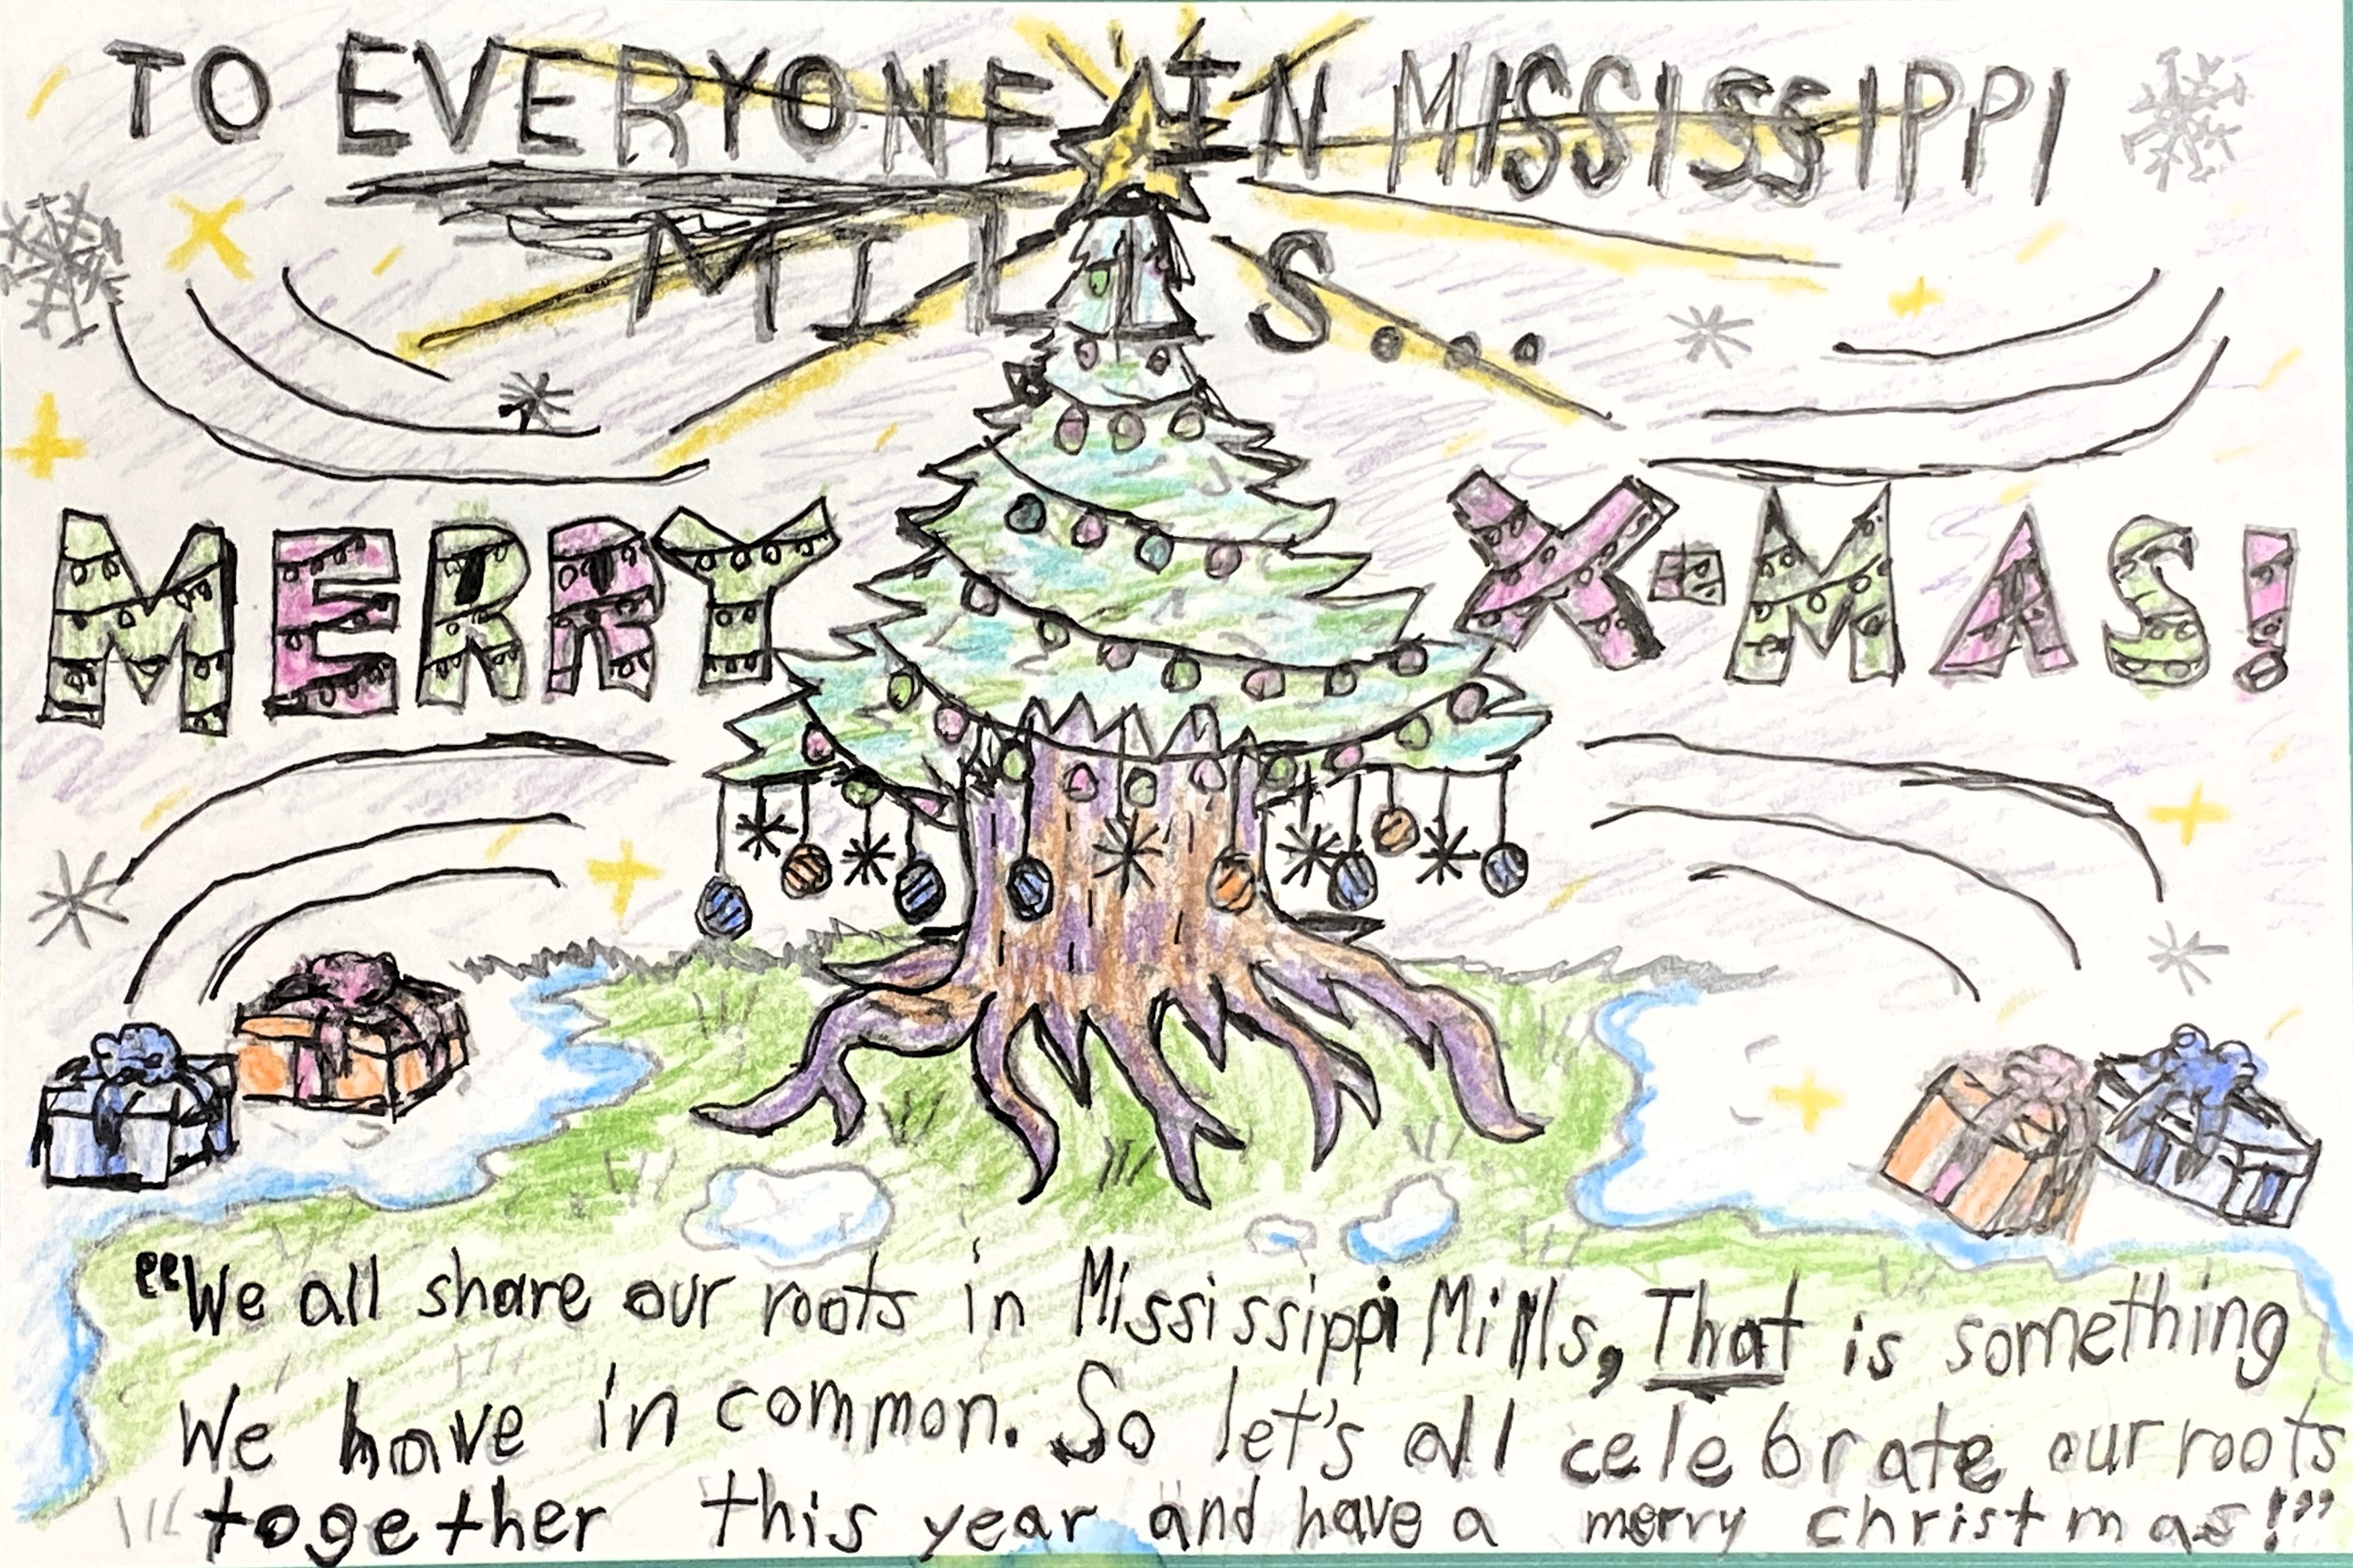 TO EVERYONE IN MISSISSIPPI
MILLS...
MERRY X-MAS!
"We all share our roots in Mississippi Mills, That is something
We have in common. So let's all celebrate our roots
together this year and have a merry christmas!"